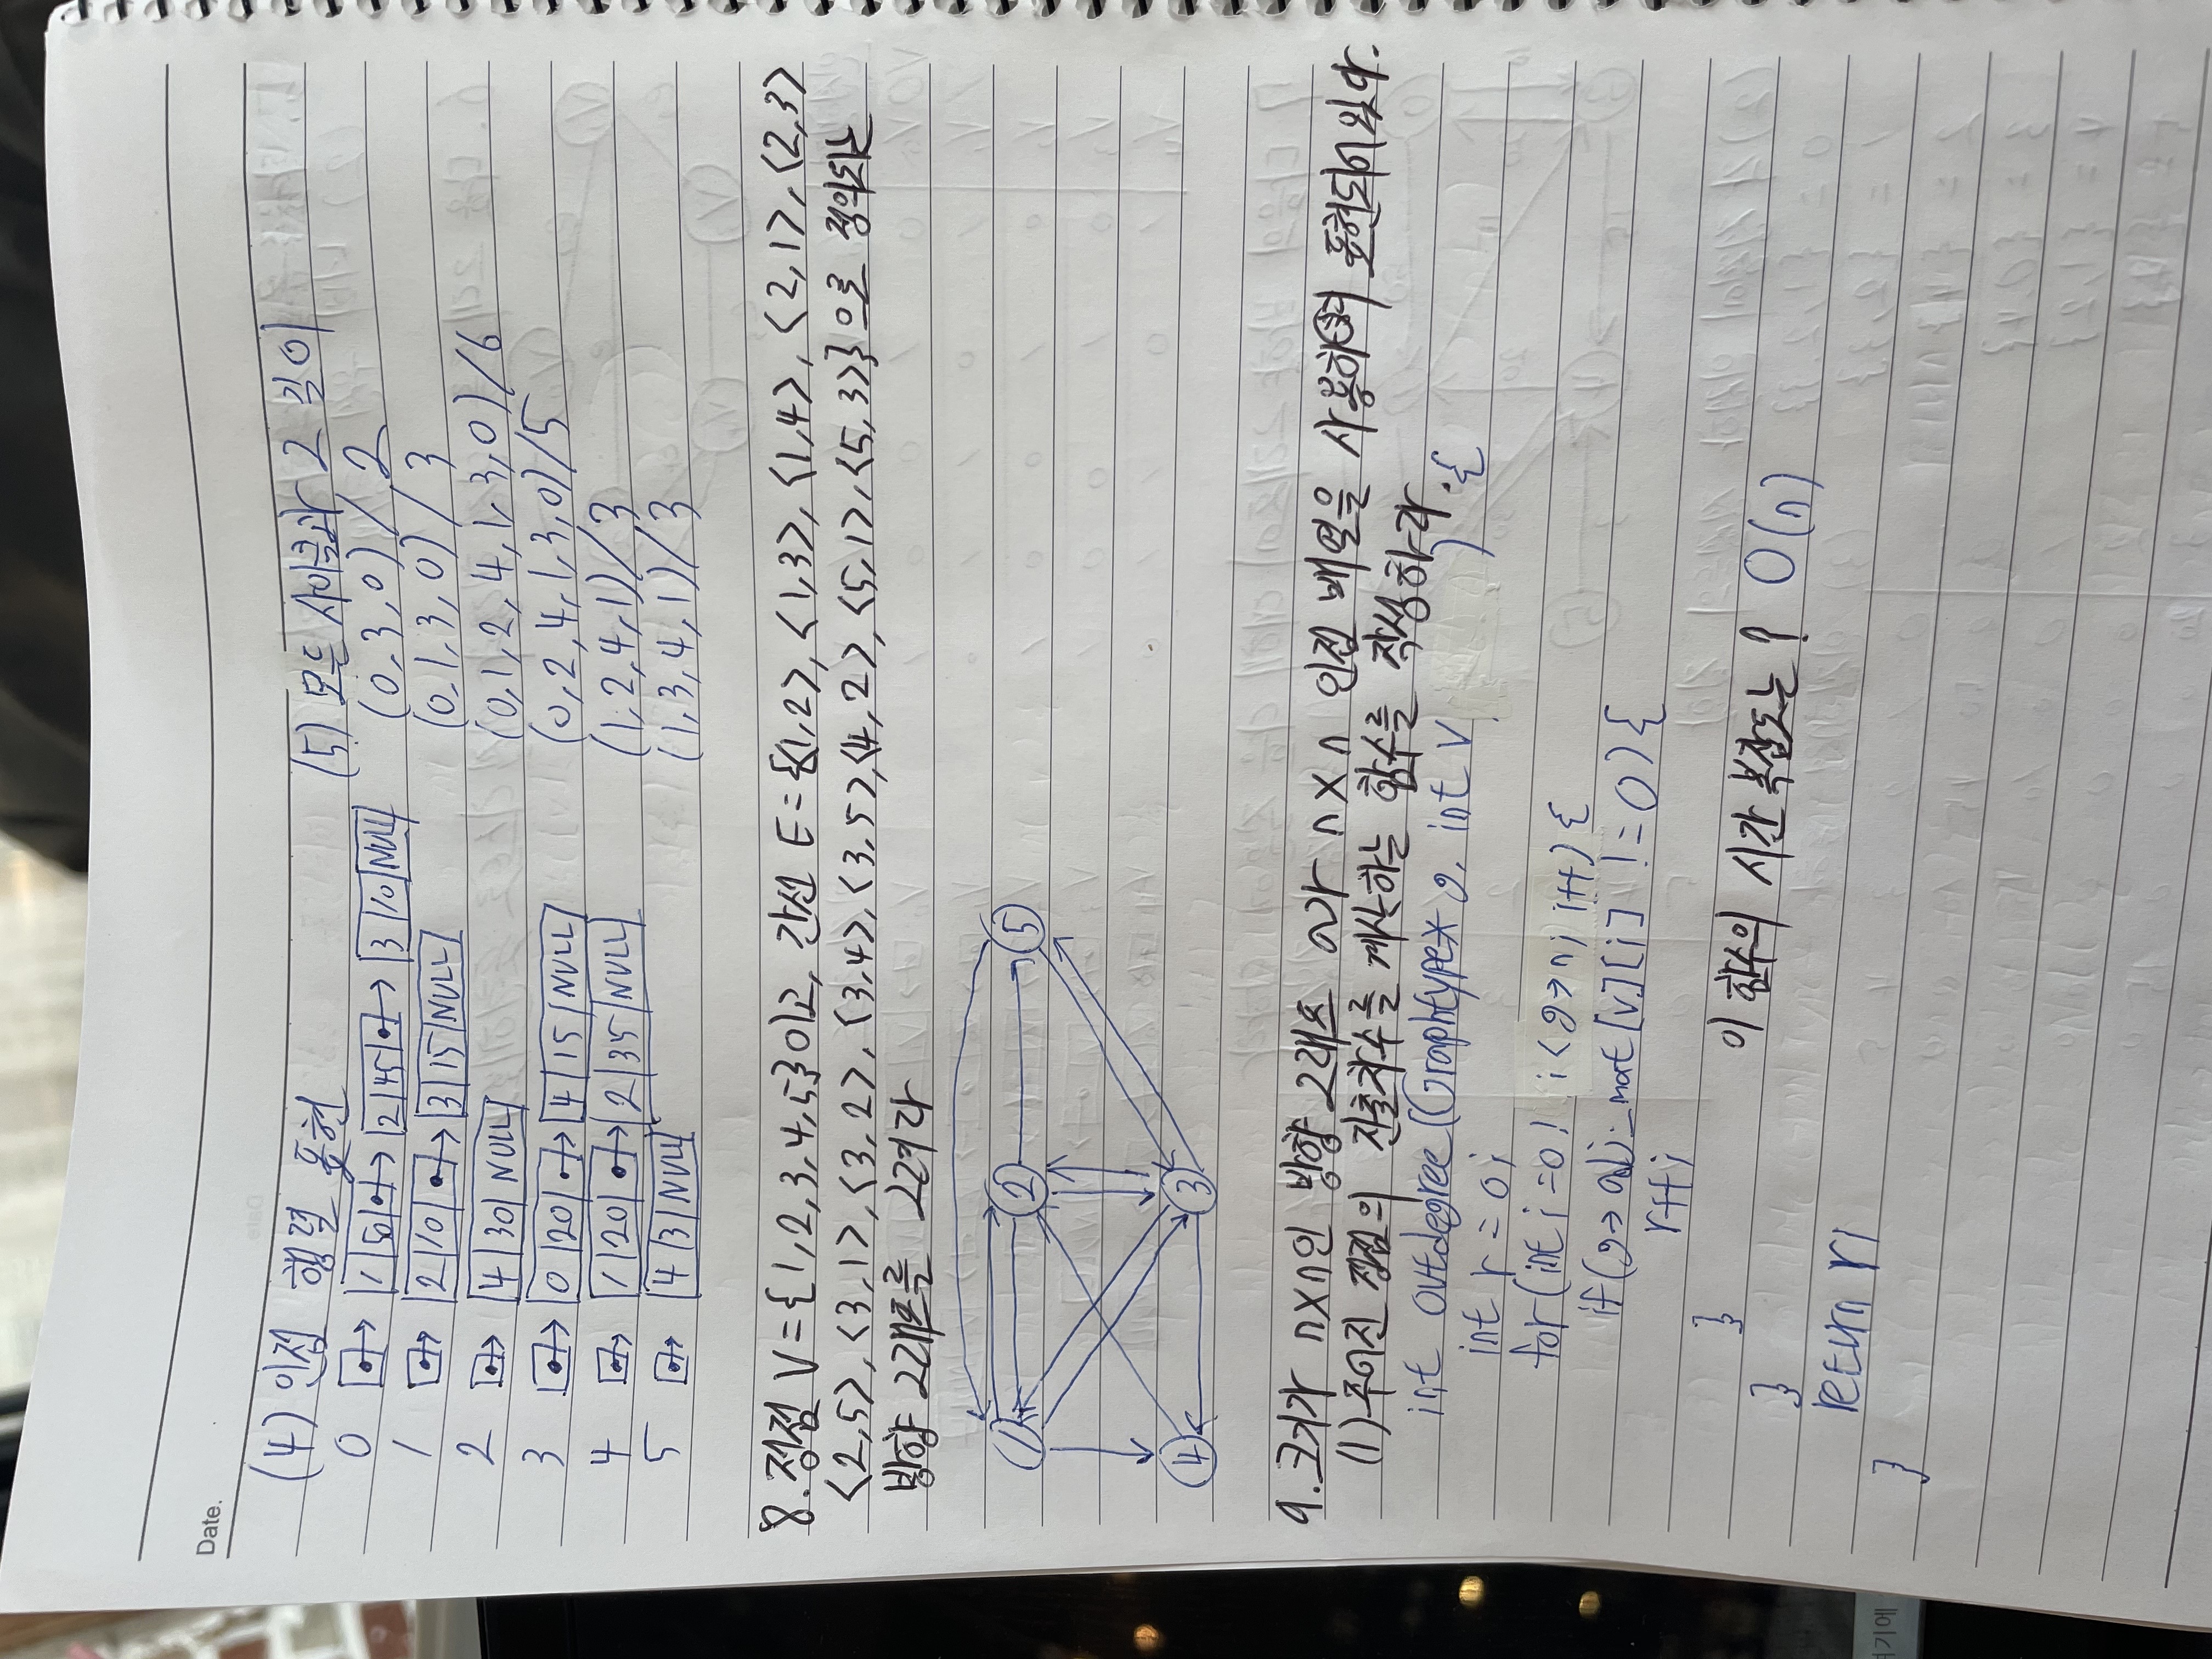 Date.
(4) 인접 행렬 표현
0 1 50 2 45 3 10 NULL
1 2 10 3 15 NULL
2 4 30 NULL
3 0 20 4 15 NULL
4 1 20 2 35 NULL
5 4 3 NULL
(5) 모든 사이클과 그 길이
(0,3,0)/2
(0,1,3,0)/3
(0,1,2,4,1,3,0)/6
(0,2,4,1,3,0)/5
(1,2,4,1)/3
(1,3,4,1)/3
8. 정점 V={1,2,3,4,5}이고, 간선 E={<1,2>, <1,3>, <1,4>, <2,1>, <2,3>
<2,5>, <3,1>, <3,2>, <3,4>, <3,5>, <4,2>, <5,1>, <5,3>}으로 정의되는
방향 그래프를 그려라
1 2 5
4 3
9. 크기가 n×n인 방향 그래프 a가 n×n 인접 배열을 사용하여 표현되어 있다.
(1) 주어진 정점의 진출차수를 계산하는 함수를 작성하라.
int outdegree(Graphtype* g, int v) {
int r = 0;
for(int i=0; i<g->n; i++) {
if(g->adj_mat[v][i] != 0) {
r++;
}
이 함수의 시간 복잡도는? O(n)
}
return r;
}
여기에